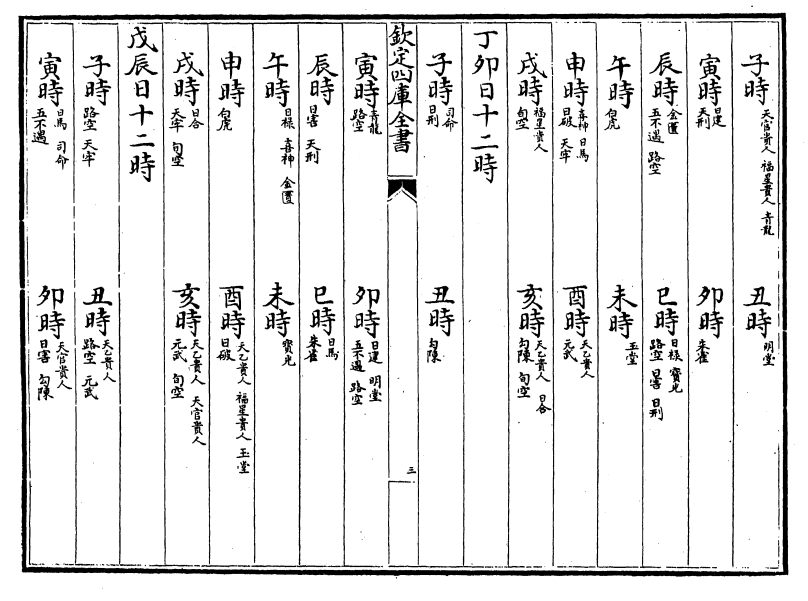 子時 天官貴人 福星貴人 青龍 丑時 明堂
寅時 日建 天刑 卯時 朱雀
辰時 金匱 五不遇 路空 巳時 日祿 寶光 路空 日害 日刑
午時 白虎 未時 玉堂
申時 喜神 日馬 日破 天牢 酉時 天乙貴人 元武
戌時 福星貴人 旬空 亥時 天乙貴人 日合 勾陳 旬空
丁卯日十二時
子時 司命 日刑 丑時 勾陳
寅時 青龍 路空 卯時 日建 明堂 五不遇 路空
欽定四庫全書
三
辰時 日害 天刑 巳時 日馬 朱雀
午時 日祿 喜神 金匱 未時 寶光
申時 白虎 酉時 天乙貴人 福星貴人 玉堂 日破
戌時 日合 天牢 旬空 亥時 天乙貴人 天官貴人 元武 旬空
戊辰日十二時
子時 路空 天牢 丑時 天乙貴人 路空 元武
寅時 日馬 司命 五不遇 卯時 天官貴人 日害 勾陳